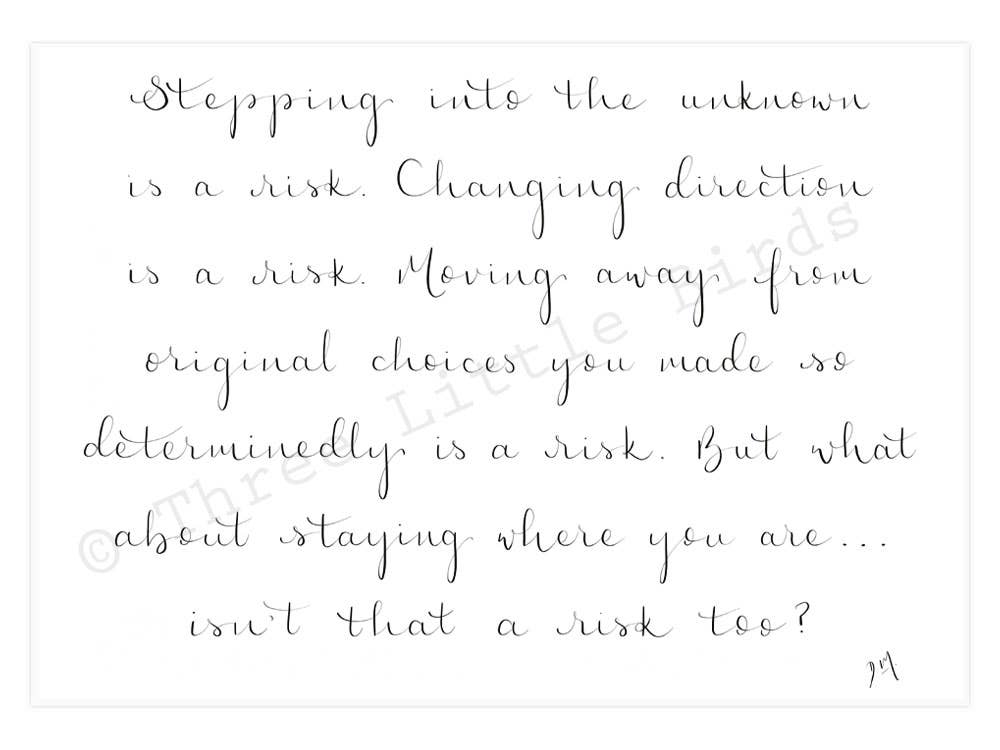 Stepping into the unknown
is a risk. Changing direction
is a risk. Moving away from
original choices you made so
determinedly is a risk. But what
about staying where you are...
isn't that a risk too?
DM
© Three Little Birds